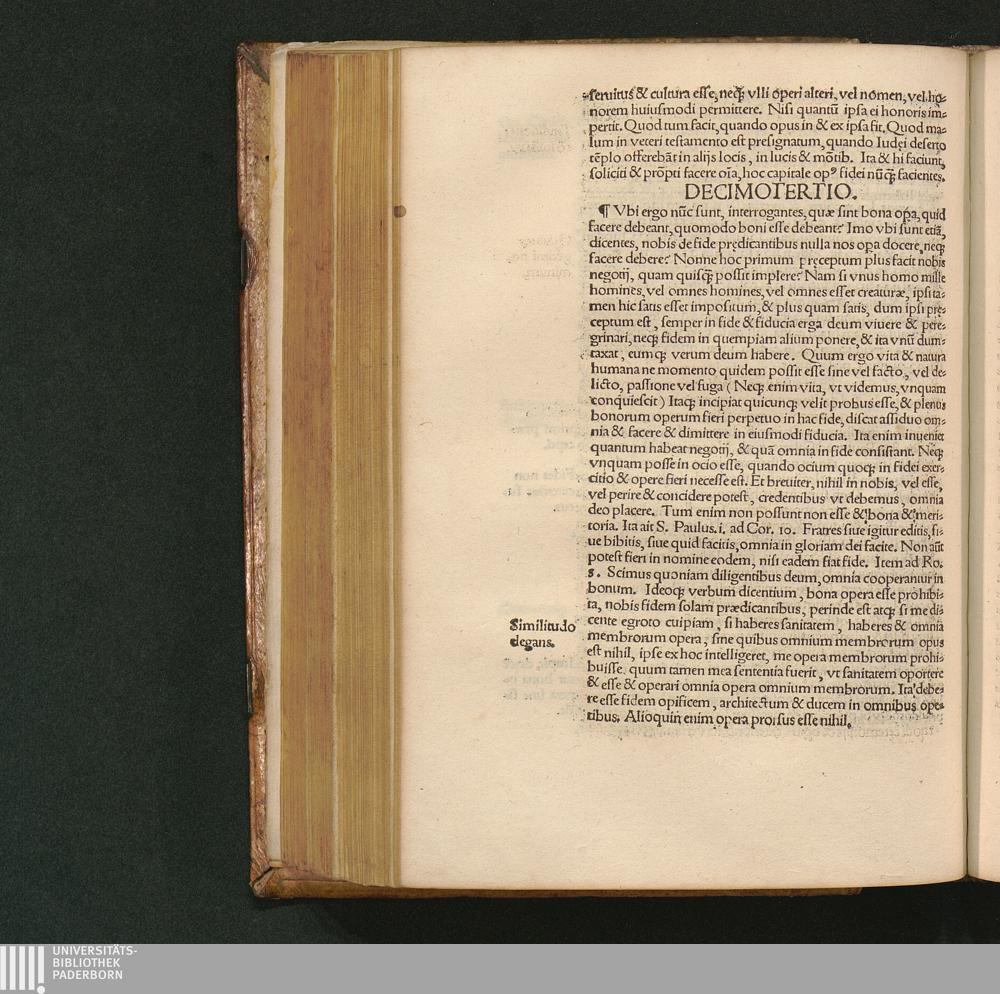 seruitus & cultura esse, neq; vlli operi alteri, vel nomen, vel ho-
norem huiusmodi permittere. Nisi quantū ipsa ei honoris im-
pertit. Quod tum facit, quando opus in & ex ipsa fit. Quod ma-
lum in veteri testamento est presignatum, quando Iudęi deserto
tēplo offerebāt in alijs locis, in lucis & mōtib. Ita & hi faciunt,
soliciti & prōpti facere oīa, hoc capitale opꝰ fidei nūq̃; facientes.
DECIMOTERTIO.
¶ Vbi ergo nūc sunt, interrogantes, quæ sint bona oꝑa, quid
facere debeant, quomodo boni esse debeant? Imo vbi sunt etiā,
dicentes, nobis de fide prędicantibus nulla nos oꝑa docere, neq;
facere debere? Nonne hoc primum pręceptum plus facit nobis
negotij, quam quisq̃; possit implere? Nam si vnus homo mille
homines, vel omnes homines, vel omnes esset creaturæ, ipsi ta-
men hic satis esset impositum, & plus quam satis, dum ipsi prę-
ceptum est, semper in fide & fiducia erga deum viuere & pere-
grinari, neq; fidem in quempiam alium ponere, & ita vnū dum-
taxat, eumq; verum deum habere. Quum ergo vita & natura
humana ne momento quidem possit esse sine vel facto, vel de-
licto, passione vel fuga ( Neq; enim vita, vt videmus, vnquam
conquiescit ) Itaq; incipiat quicunq; velit probus esse, & plenus
bonorum operum fieri perpetuo in hac fide, discat assiduo om-
nia & facere & dimittere in eiusmodi fiducia. Ita enim inueniet
quantum habeat negotij, & quā omnia in fide consistant. Neq;
vnquam posse in ocio esse, quando ocium quoq; in fidei exer-
citio & opere fieri necesse est. Et breuiter, nihil in nobis, vel esse,
vel perire & concidere potest, credentibus vt debemus, omnia
deo placere. Tum enim non possunt non esse & bona & meri-
toria. Ita ait S. Paulus. i. ad Cor. 10. Fratres siue igitur editis, si-
ue bibitis, siue quid facitis, omnia in gloriam dei facite. Non aūt
potest fieri in nomine eodem, nisi eadem fiat fide. Item ad Ro.
8. Scimus quoniam diligentibus deum, omnia cooperantur in
bonum. Ideoq; verbum dicentium, bona opera esse prohibi-
ta, nobis fidem solam prædicantibus, perinde est atq; si me di-
cente egroto cuipiam, si haberes sanitatem, haberes & omnia
membrorum opera, sine quibus omnium membrorum opus
est nihil, ipse ex hoc intelligeret, me opera membrorum prohi-
buisse. quum tamen mea sententia fuerit, vt sanitatem oportere
& esse & operari omnia opera omnium membrorum. Ita debe-
re esse fidem opificem, architectum & ducem in omnibus ope-
ribus. Alioquin enim opera prorsus esse nihil.
Similitudo
elegans.
UNIVERSITÄTS-
BIBLIOTHEK
PADERBORN